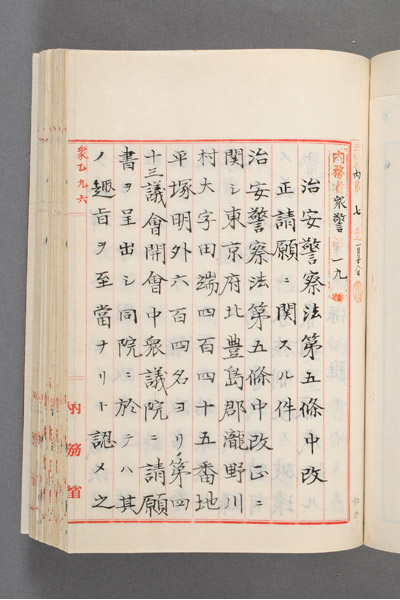 内務省衆警第一九號
治安警察法第五條中改
正請願ニ關スル件
治安警察法第五條中改正ニ
關シ東京府北豊島郡瀧野川
村大字田端四百四十五番地
平塚明外六百四名ヨリ第四
十三議會開會中衆議院ニ請願
書ヲ呈出シ同院ニ於テハ其
ノ趣旨ヲ至當ナリト認メ之
衆乙九六
内務省